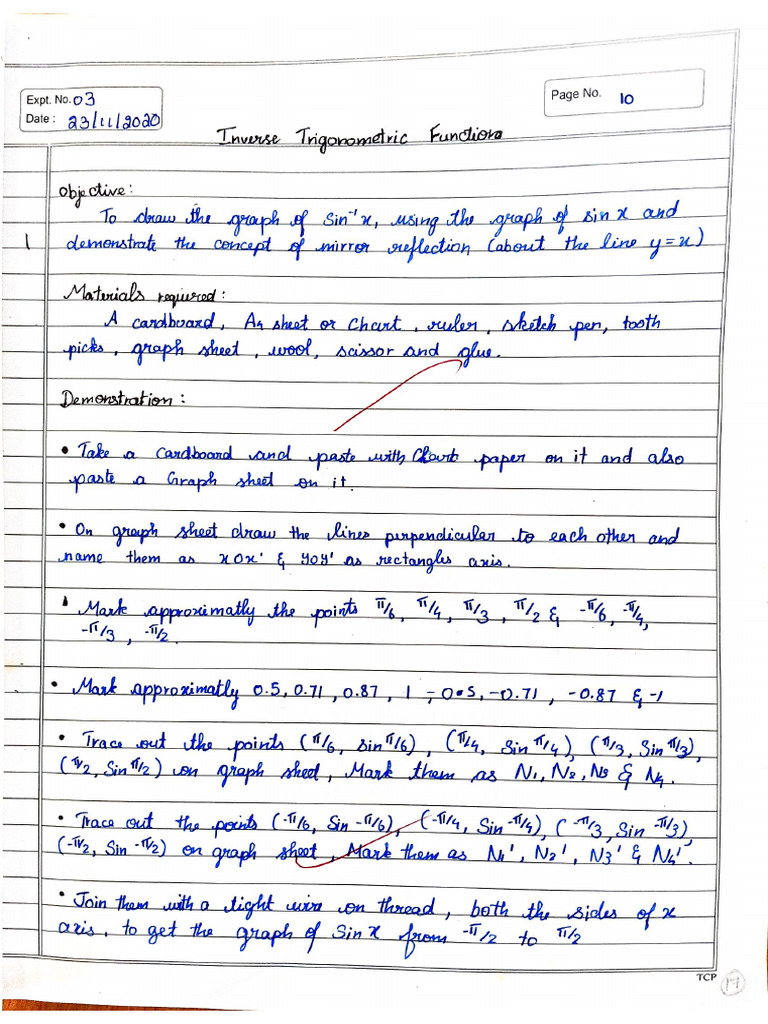 Expt. No. 03
Page No. 10
Date : 23/11/2020
Inverse Trigonometric Functions
Objective:
To draw the graph of Sin⁻¹x, using the graph of sin x and
1
demonstrate the concept of mirror reflection (about the line y=x)
Materials required:
A cardboard, A4 sheet or Chart, ruler, sketch pen, tooth
picks, graph sheet, wool, scissor and glue.
Demonstration:
• Take a Cardboard and paste with Chart paper on it and also
paste a Graph sheet on it.
• On graph sheet draw the lines perpendicular to each other and
name them as xOx' & yOy' as rectangles axis.
• Mark approximatly the points π/6, π/4, π/3, π/2 & -π/6, -π/4,
-π/3, -π/2.
• Mark approximatly 0.5, 0.71, 0.87, 1 -0.5, -0.71, -0.87 & -1
• Trace out the points (π/6, sin π/6), (π/4, Sin π/4), (π/3, Sin π/3),
(π/2, Sin π/2) on graph sheet, Mark them as N1, N2, N3 & N4.
• Trace out the points (-π/6, Sin -π/6), (-π/4, Sin -π/4), (-π/3, Sin -π/3)
(-π/2, Sin -π/2) on graph sheet, Mark them as N1', N2', N3' & N4'.
• Join them with a tight wire on thread, both the sides of x
axis, to get the graph of Sin x from -π/2 to π/2
TCP